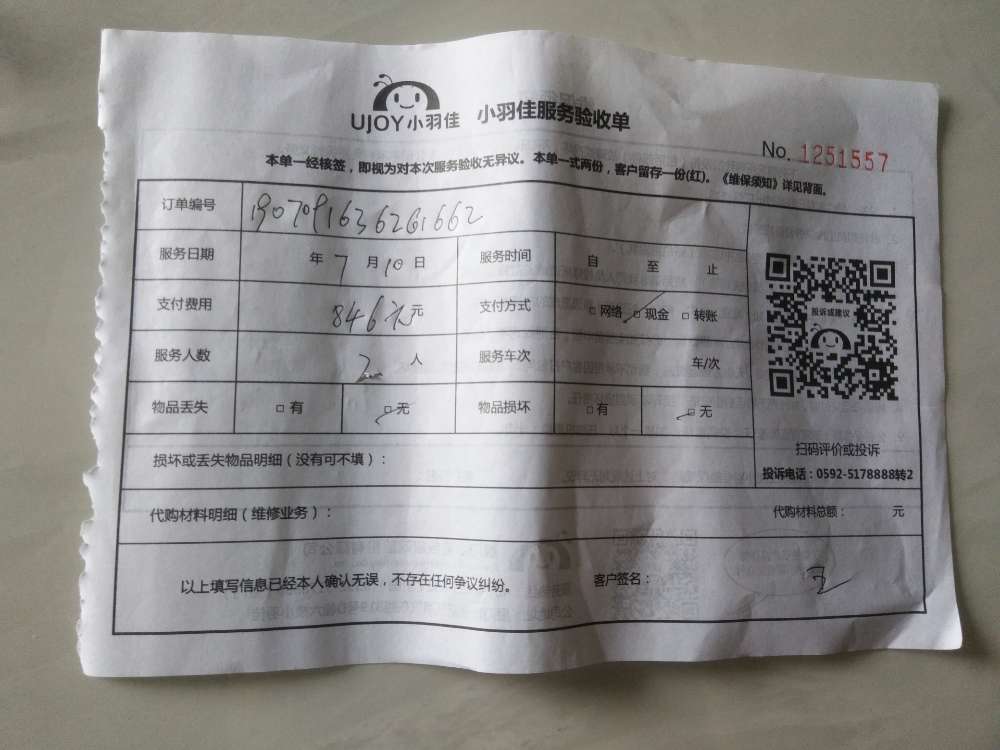 UJOY小羽佳 小羽佳服务验收单
No. 1251557
本单一经核签，即视为对本次服务验收无异议。本单一式两份，客户留存一份(红)。《维保须知》详见背面。
订单编号 1907091636261662
服务日期 年 7 月 10 日 服务时间 自 至 止
支付费用 846元 元 支付方式 □网络 □现金 □转账
服务人数 2 人 服务车次 车/次
物品丢失 □有 □无 物品损坏 □有 □无
投诉或建议
扫码评价或投诉
投诉电话：0592-5178888转2
损坏或丢失物品明细（没有可不填）：
代购材料明细（维修业务）： 代购材料总额： 元
以上填写信息已经本人确认无误，不存在任何争议纠纷。 客户签名：